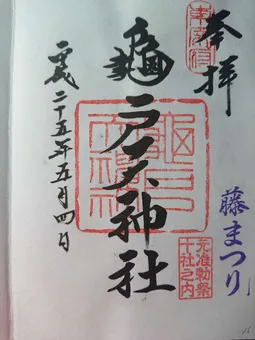 奉拝
藤まつり
元准勅祭
十社之内
龜戸天神社
平成二十五年五月四日